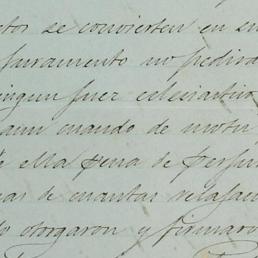 tos se convierten en su
juramento no pedira
ningun juez eclesiastico
aun cuando de motu
de ella pena de perju
mas de cuantas relajaci
lo otorgaron y firmaro